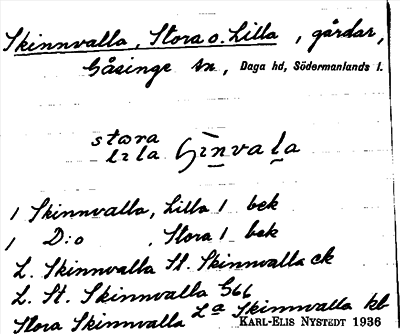 Skinnvalla, Stora o. Lilla, gårdar,
Gåsinge sn, Daga hd, Södermanlands l.
stora
lila ʃìnvala
1 Skinnvalla, Lilla 1 bek
1 D:o , Stora 1 bek
L. Skinnvalla St. Skinnvalla ck
L. St. Skinnvalla G66
Stora Skinnvalla La Skinnvalla kb
KARL-ELIS NYSTEDT 1936